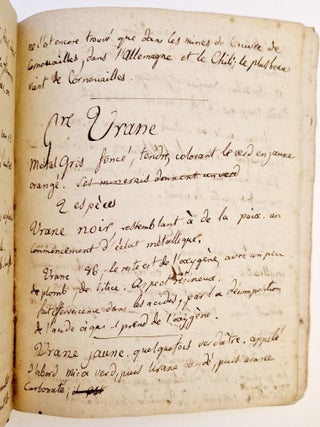 ne s'est encore trouvé que dans les mines de Cuivre de
Cornouailles, dans l'Allemagne et le Chili; le plus beau
vient de Cornouailles.
gre Urane
Métal Gris foncé, tendre, colorant le verd en jaune
orange. Ses minerais donnent un verd
2 espèces
Urane noir, ressemblant à de la poix. un
commencement d'éclat métallique.
Urane 96, le reste est de l'oxygène, avec un peu
de plomb, de silice. Aspect résineux.
fait effervescence dans les acides, par la décomposition
de l'acide prend de l'oxygène.
Urane jaune. quelquefois verdâtre. appelé
d'abord mica verd, puis urane puis urane
Carbonaté,